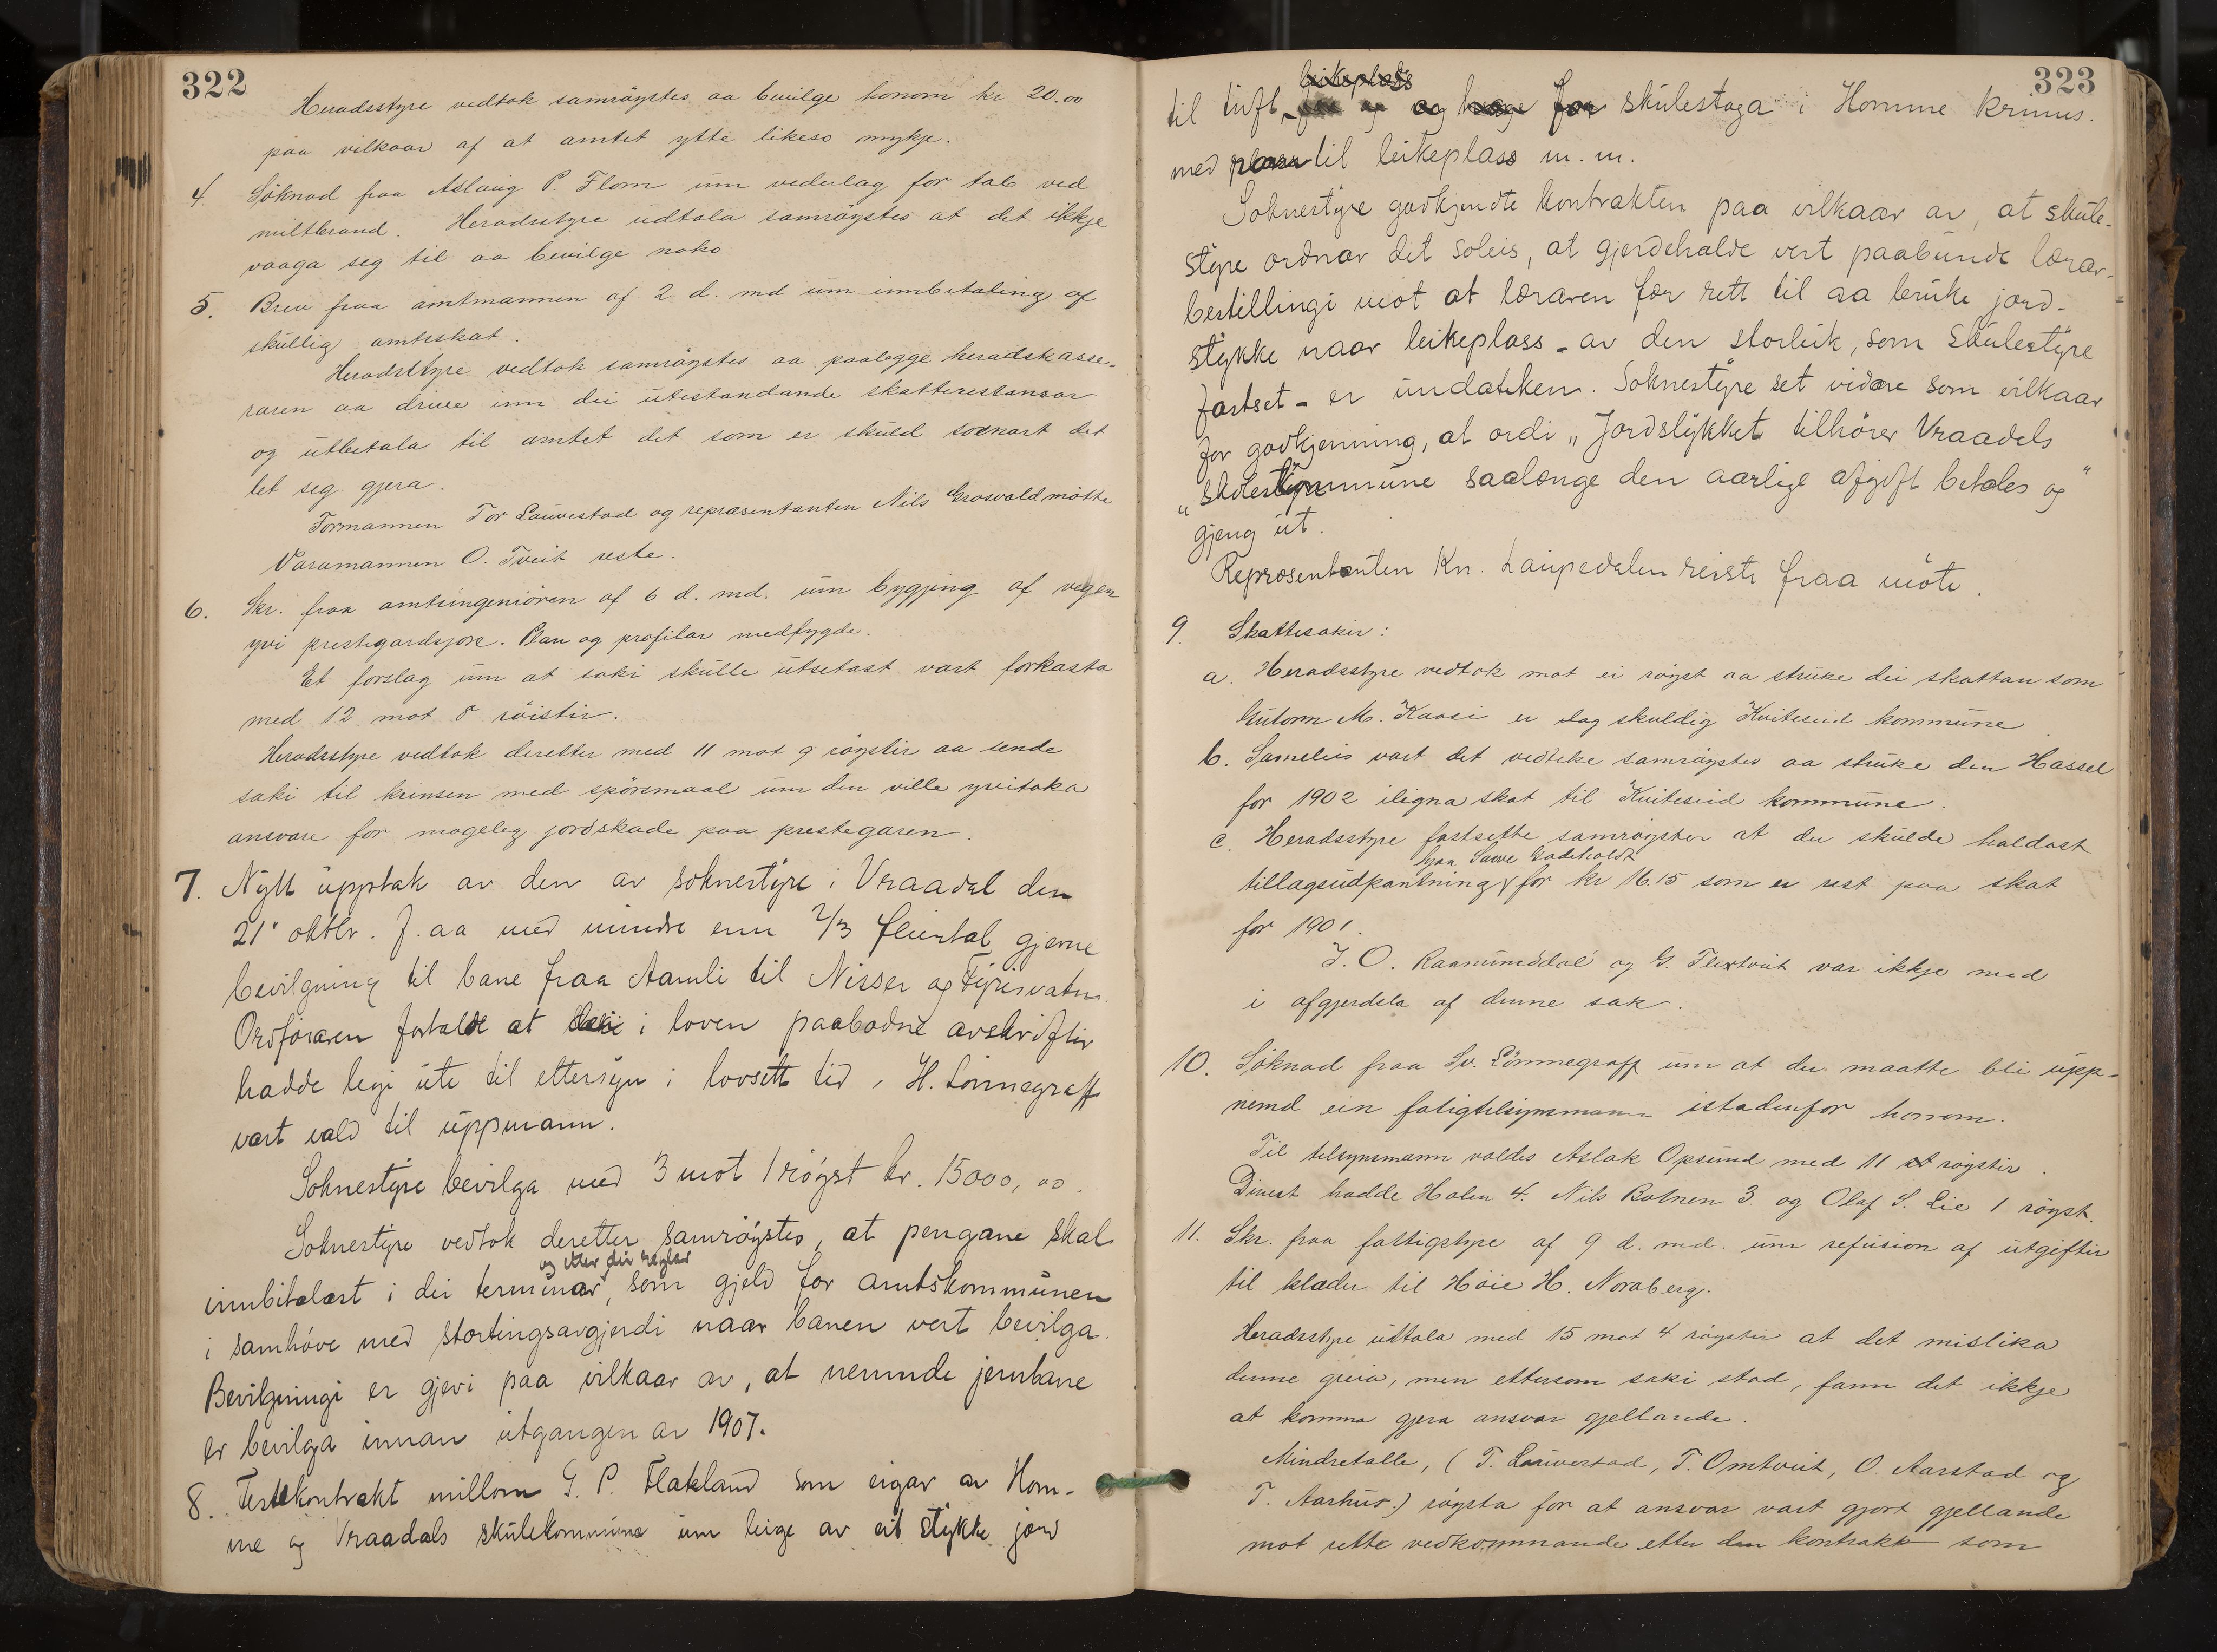 322
Heradsstyre vedtok samröystes aa bevilge honom kr 20.00
paa vilkaar af at amtet ytte likeso mykje.
4. Söknad fraa Aslaug P. Flom um vederlag for tab ved
miltbrand. Heradsstyre udtala samröystes at det ikkje
vaaga seg til aa bevilge noko
5. Brev fraa amtmannen af 2 d. md um innbetaling af
skullig amtsskat.
Heradsstyre vedtok samröystes aa paalegge heradskasse-
raren aa drive inn dei utestandande skatterestansar
og utbetala til amtet det som er skuld so snart det
let seg gjera.
Formannen Tor Lauvestad og repræsentanten Nils Grosvold mötte
Varamannen O. Tveit reste.
6. Skr. fraa amtsingeniören af 6 d. md. um bygjing af vegen
yvi prestegardsjore. Plan og profilar medfygde.
Et forslag um at saki skulle utsetast vart forkasta
med 12 mot 8 röistir.
Heradsstyre vedtok deretter med 11 mot 9 röystir aa sende
saki til krinsen med spörsmaal um den ville yvitaka
ansvare for mogeleg jordskade paa prestegaren.
7. Nytt upptak av den av soknestyre i Vraadal den
21' oktbr. f. aa med mindre enn 2/3 fleirtal gjevne
bevilgning til bane fraa Aamli til Nisser og Fyrisvatn.
Ordföraren fortalde at i loven paabodne avskriftir
hadde legi ute til ettersyn i lovsett tid. H. Lönnegraff
vart vald til uppmann.
Soknestyre bevilga med 3 mot 1 röyst kr. 15000,00.
Soknestyre vedtok deretter samröystes, at pengane skal
og etter dei reglar
innbitalast i dei terminar, som gjeld for amtskommunen
i samhöve med stortingsavgjerdi naar banen vert bevilga.
Bevilgningi er gjevi paa vilkaar av, at nemnde jernbane
er bevilga innan utgangen av 1907.
8. Festekontrakt millom G. P. Flakland som eigar av Hom-
me og Vraadals skulekommune um leige av eit stykke jord
323
leikeplass
til tuft og hage for skulestoga i Homme krins.
med til leikeplass m. m.
Soknestyre godkjendte kontrakten paa vilkaar av, at skule-
styre ordnar det soleis, at gjerdehalde vert paabunde lærar-
bestillingi mot at læraren fær rett til aa bruke jord-
stykke naar leikeplass - av den storleik, som skulestyre
fastset - er undateken. Soknestyre set vidare som vilkaar
for godkjenning, at ordi „Jordstykket tilhörer Vraadals
„skolekommune saalænge den aarlige afgift betales og"
gjeng ut.
Repræsentanten Kn. Laupedalen reiste fraa möte.
9. Skattesakir:
a. Heradsstyre vedtok mot ei röyst aa struke dei skattan som
Gutorm M. Kaasi er dag skuldig Kviteseid kommune
b. Sameleis vart det vedteke samröystes aa struke den Hassel
for 1902 iligna skat til Kviteseid kommune.
c. Heradsstyre fastsette samröyster at du skulde haldast
hjaa Saave Gadeholdt
tillagsudpantning for kr 16.15 som er rest paa skat
for 1901.
J. O. Raamunddal og G. Flextveit var ikkje med
i afgjerdela af denne sak.
10. Söknad fraa Sv. Lönnegraff um at du maatte bli upp-
nemd ein fatigtilsynsmann istadenfor honom.
Til tilsynsmann valdes Aslak Opsund med 11 röystir.
Dinest hadde Holm 4. Nils Botnen 3. og Olaf S. Lie 1 röyst.
11. Skr. fraa fattigstyre af 9 d. md. um refusion af utgiftir
til klæder til Höie H. Noraberg.
Heradsstyre uttala med 15 mot 4 röystir at det mislika
denne greia, men ettersom saki stod, fann det ikkje
at komma gjera ansvar gjellande.
Mindretalle, (T. Lauvestad, T. Omtveit, O. Aarstad og
T. Aarhus.) röysta for at ansvar vart gjort gjellande
mot rette vedkommande etter den kontrakt som